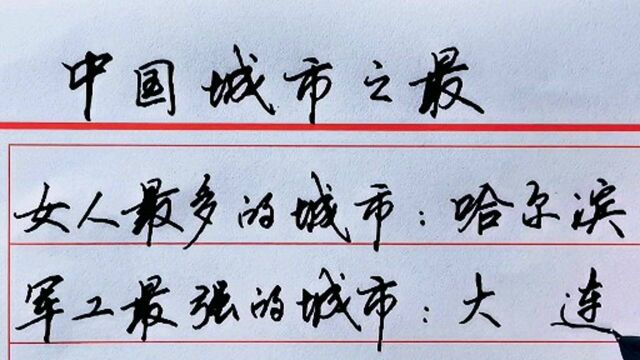 中国城市之最
女人最多的城市：哈尔滨
军工最强的城市：大连